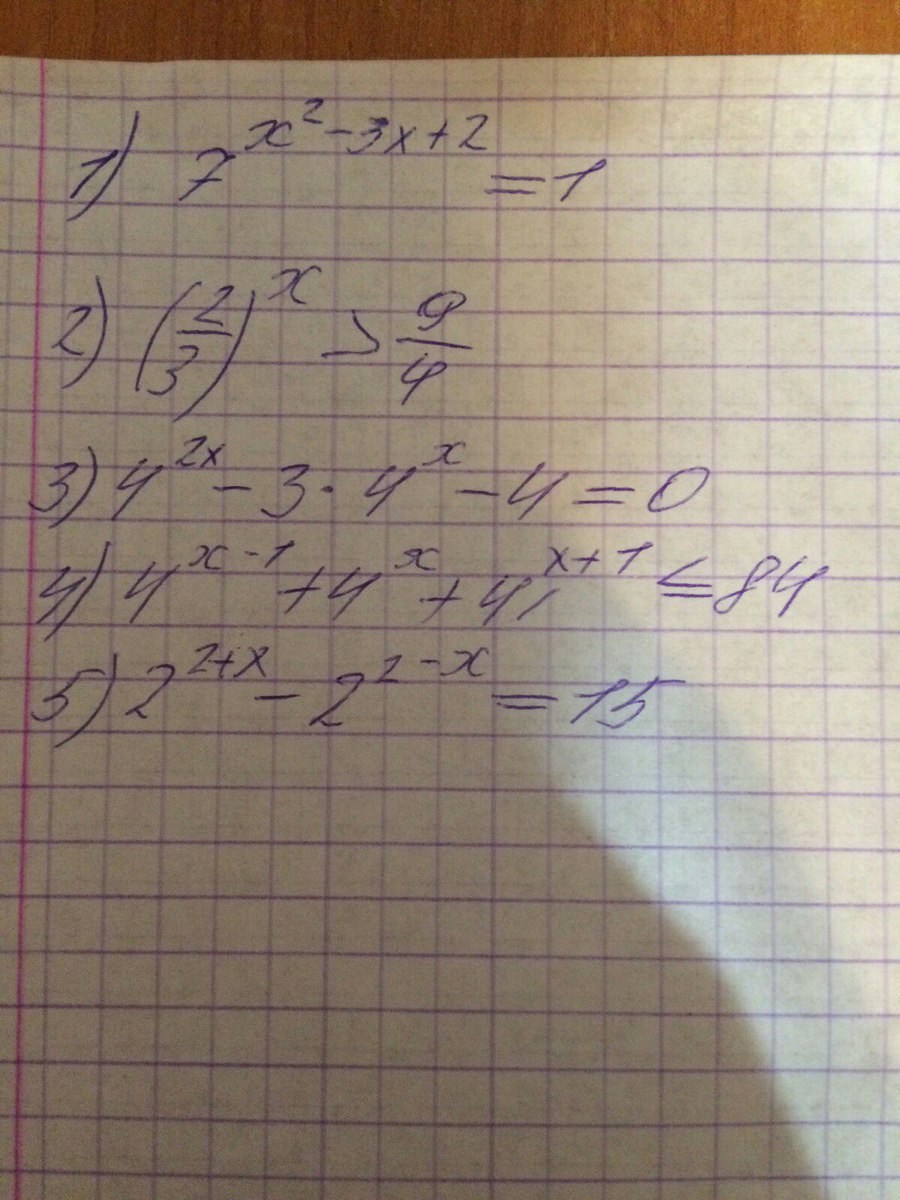 1) 7^{x^2-3x+2} = 1
2) (2/3)^x > 9/4
3) 4^{2x} - 3 · 4^x - 4 = 0
4) 4^{x-1} + 4^x + 4^{x+1} ≤ 84
5) 2^{2+x} - 2^{2-x} = 15